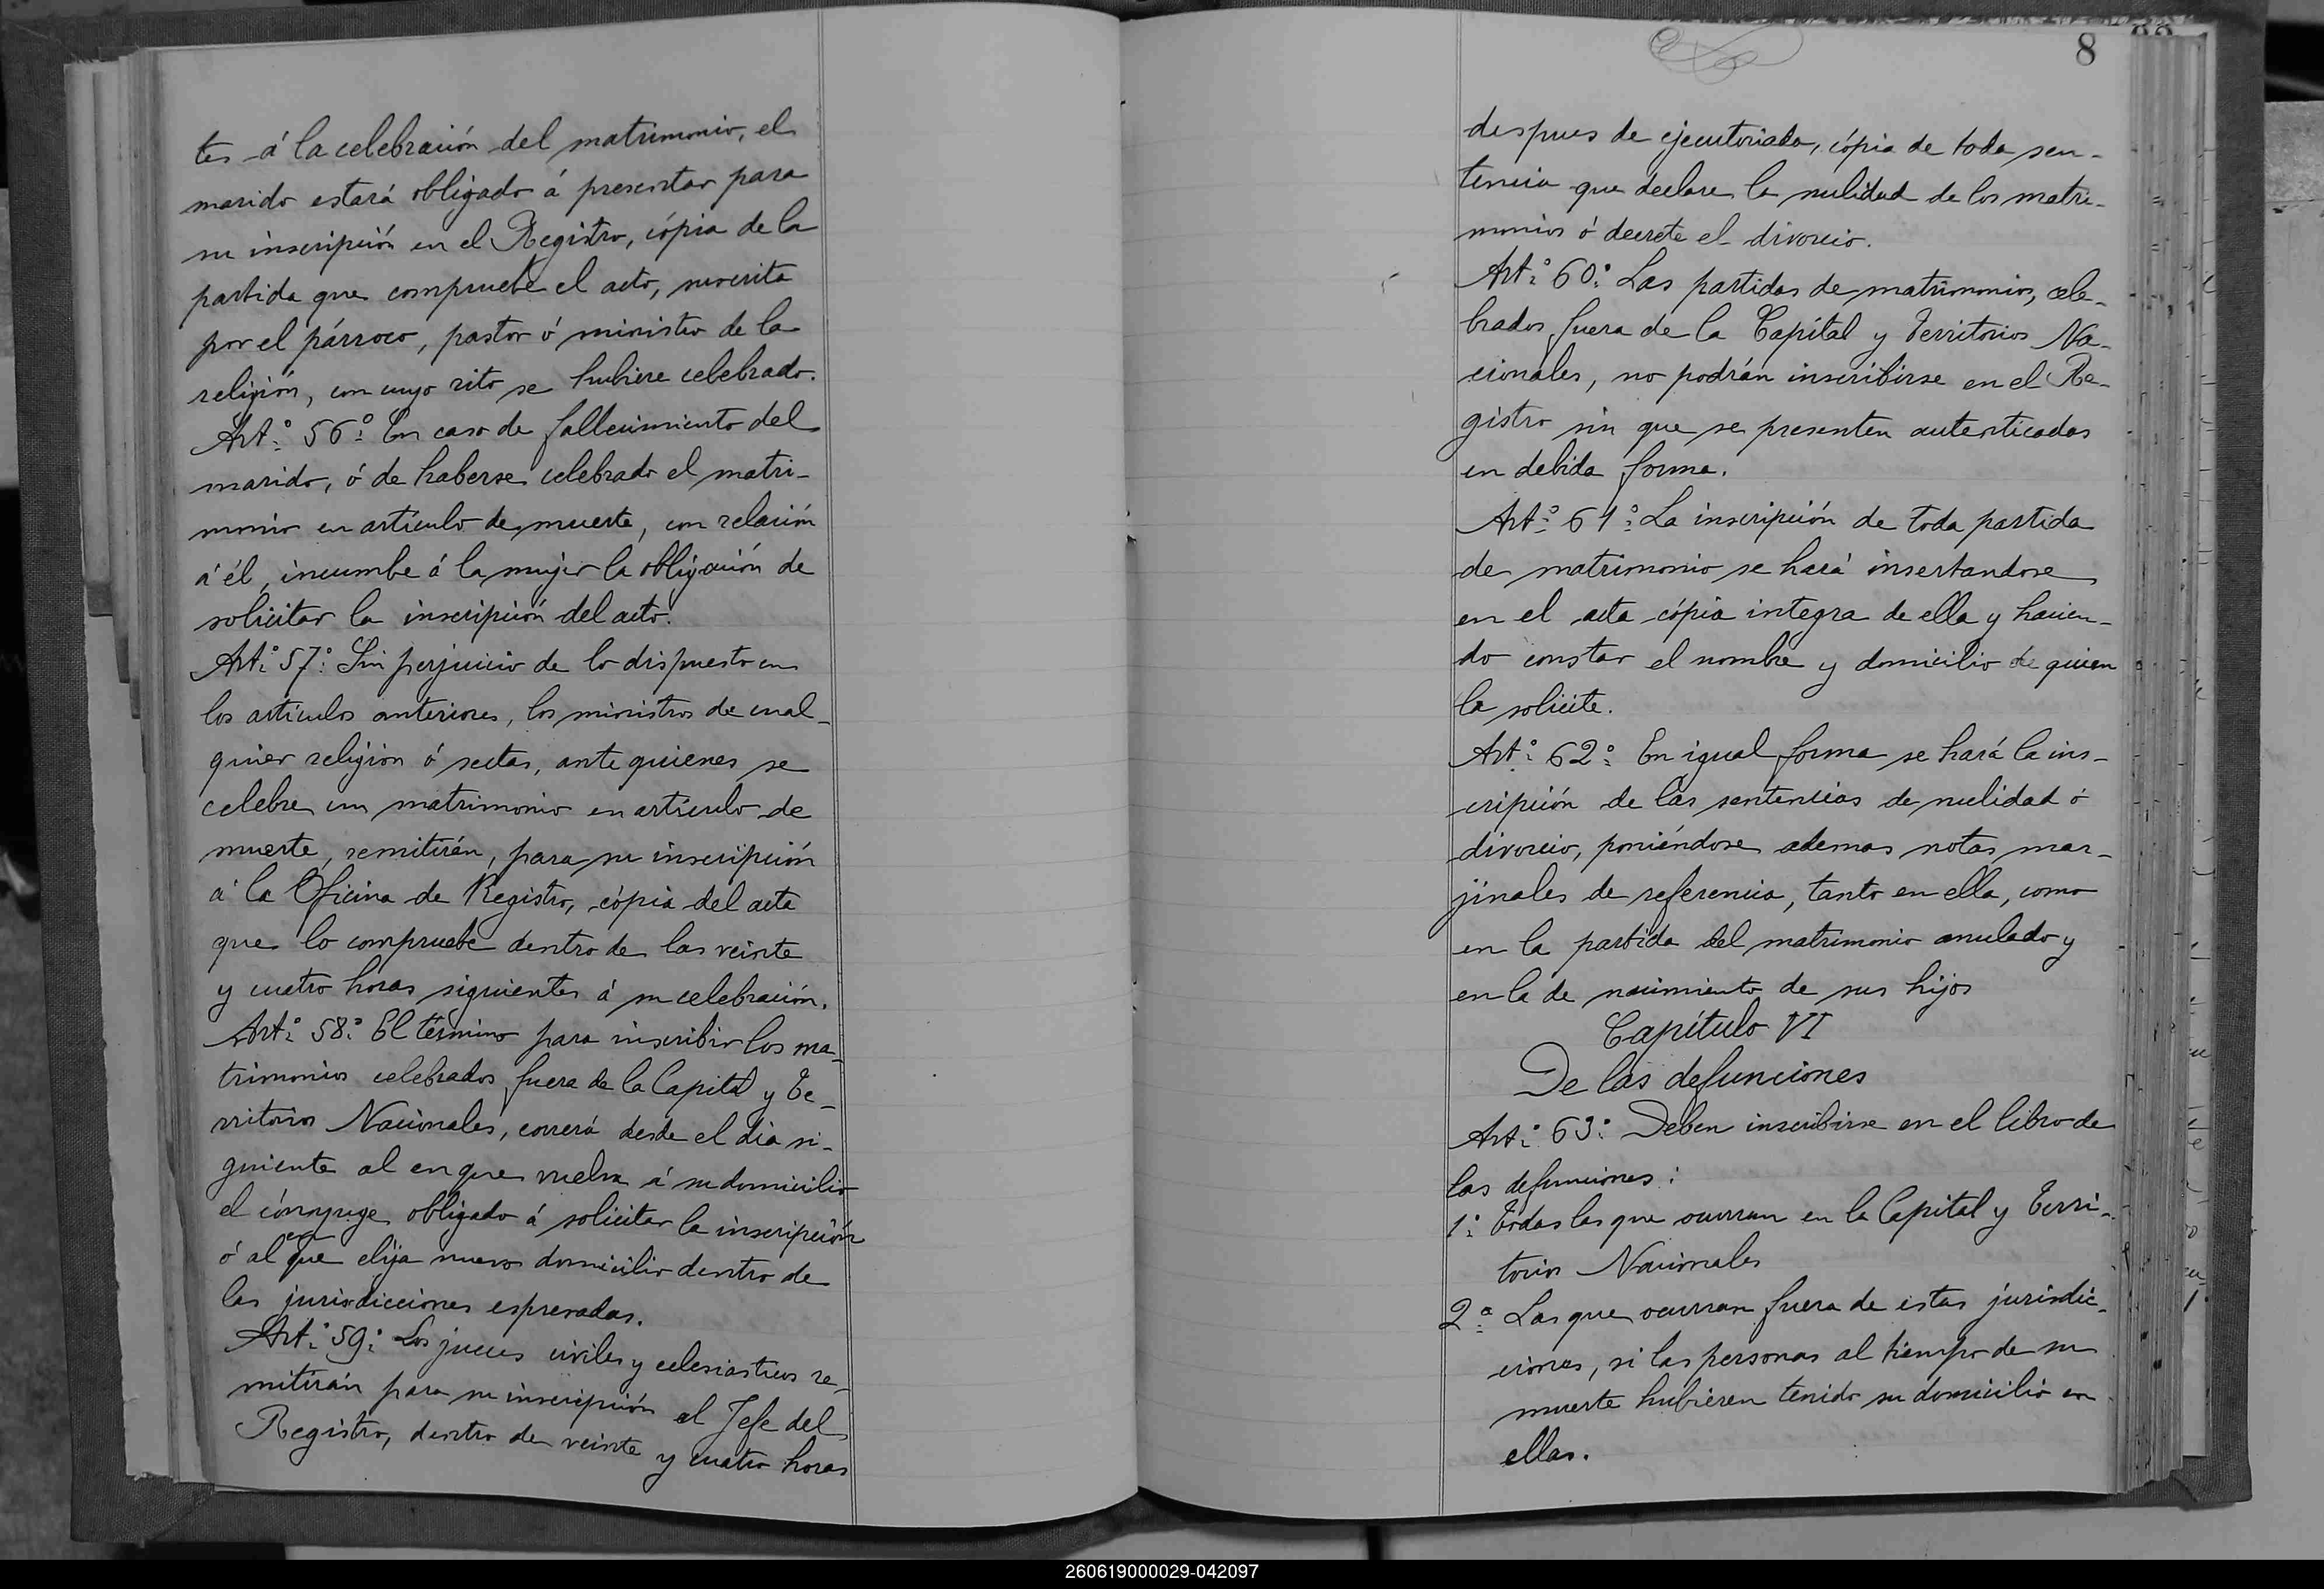 tes á la celebración del matrimonio, el
marido estará obligado á presentar para
su inscripción en el Registro, cópia de la
partida que compruebe el acto, suscrita
por el párroco, pastor ó ministro de la
religión, con cuyo rito se hubiere celebrado.
Art.º 56.º En caso de fallecimiento del
marido, ó de haberse celebrado el matri-
monio en artículo de muerte, con relación
á él, incumbe á la mujer la obligación de
solicitar la inscripción del acto.
Art.º 57.º Sin perjuicio de lo dispuesto en
los artículos anteriores, los ministros de cual-
quier religion ó sectas, ante quienes se
celebre un matrimonio en artículo de
muerte, remitirán, para su inscripción
á la Oficina de Registro, cópia del acta
que lo compruebe dentro de las veinte
y cuatro horas siguientes á su celebración.
Art.º 58.º El término para inscribir los ma-
trimonios celebrados fuera de la Capital y Te-
rritorios Nacionales, correrá desde el dia si-
guiente al en que vuelva á su domicilio
el cónyuge obligado á solicitar la inscripción
ó al en que elija nuevo domicilio dentro de
las jurisdicciones espresadas.
Art.º 59.º Los jueces civiles y eclesiasticos re-
mitirán para su inscripción al Jefe del
Registro, dentro de veinte y cuatro horas
8
despues de ejecutoriada, cópia de toda sen-
tencia que declare la nulidad de los matri-
monios ó decrete el divorcio.
Art.º 60.º Las partidas de matrimonios, cele-
brados fuera de la Capital y Territorios Na-
cionales, no podrán inscribirse en el Re-
gistro sin que se presenten autenticadas
en debida forma.
Art.º 61.º La inscripción de toda partida
de matrimonio se hará insertandose
en el acta cópia integra de ella y hacien-
do constar el nombre y domicilio de quien
la solicite.
Art.º 62.º En igual forma se hará la ins-
cripción de las sentencias de nulidad ó
divorcio, poniéndose ademas notas mar-
jinales de referencia, tanto en ella, como
en la partida del matrimonio anulado y
en la de nacimiento de sus hijos
Capítulo VI
De las defunciones
Art.º 63.º Deben inscribirse en el libro de
las defunciones:
1.º Todas las que ocurran en la Capital y Terri-
torios Nacionales
2.ª Las que ocurran fuera de estas jurisdic-
ciones, si las personas al tiempo de su
muerte hubieren tenido su domicilio en
ellas.
260619000029-042097